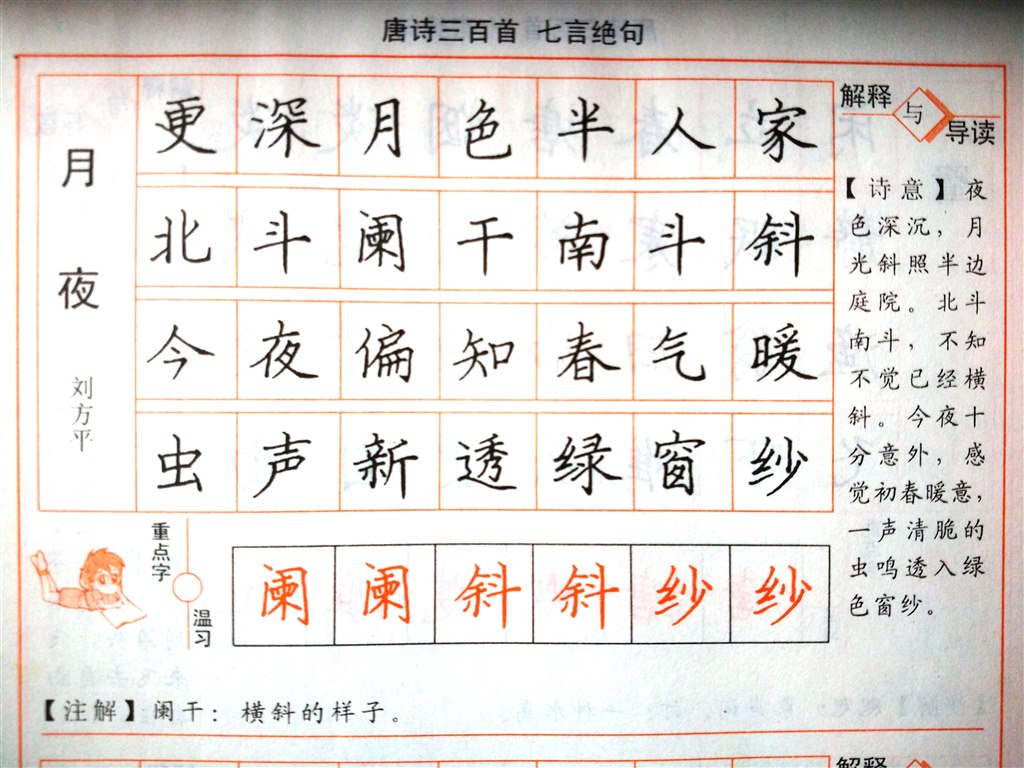 唐诗三百首 七言绝句
月夜
刘方平
更深月色半人家
北斗阑干南斗斜
今夜偏知春气暖
虫声新透绿窗纱
解释与导读
【诗意】夜
色深沉，月
光斜照半边
庭院。北斗
南斗，不知
不觉已经横
斜。今夜十
分意外，感
觉初春暖意，
一声清脆的
虫鸣透入绿
色窗纱。
重点字
温习
阑阑斜斜纱纱
【注解】阑干：横斜的样子。
解释